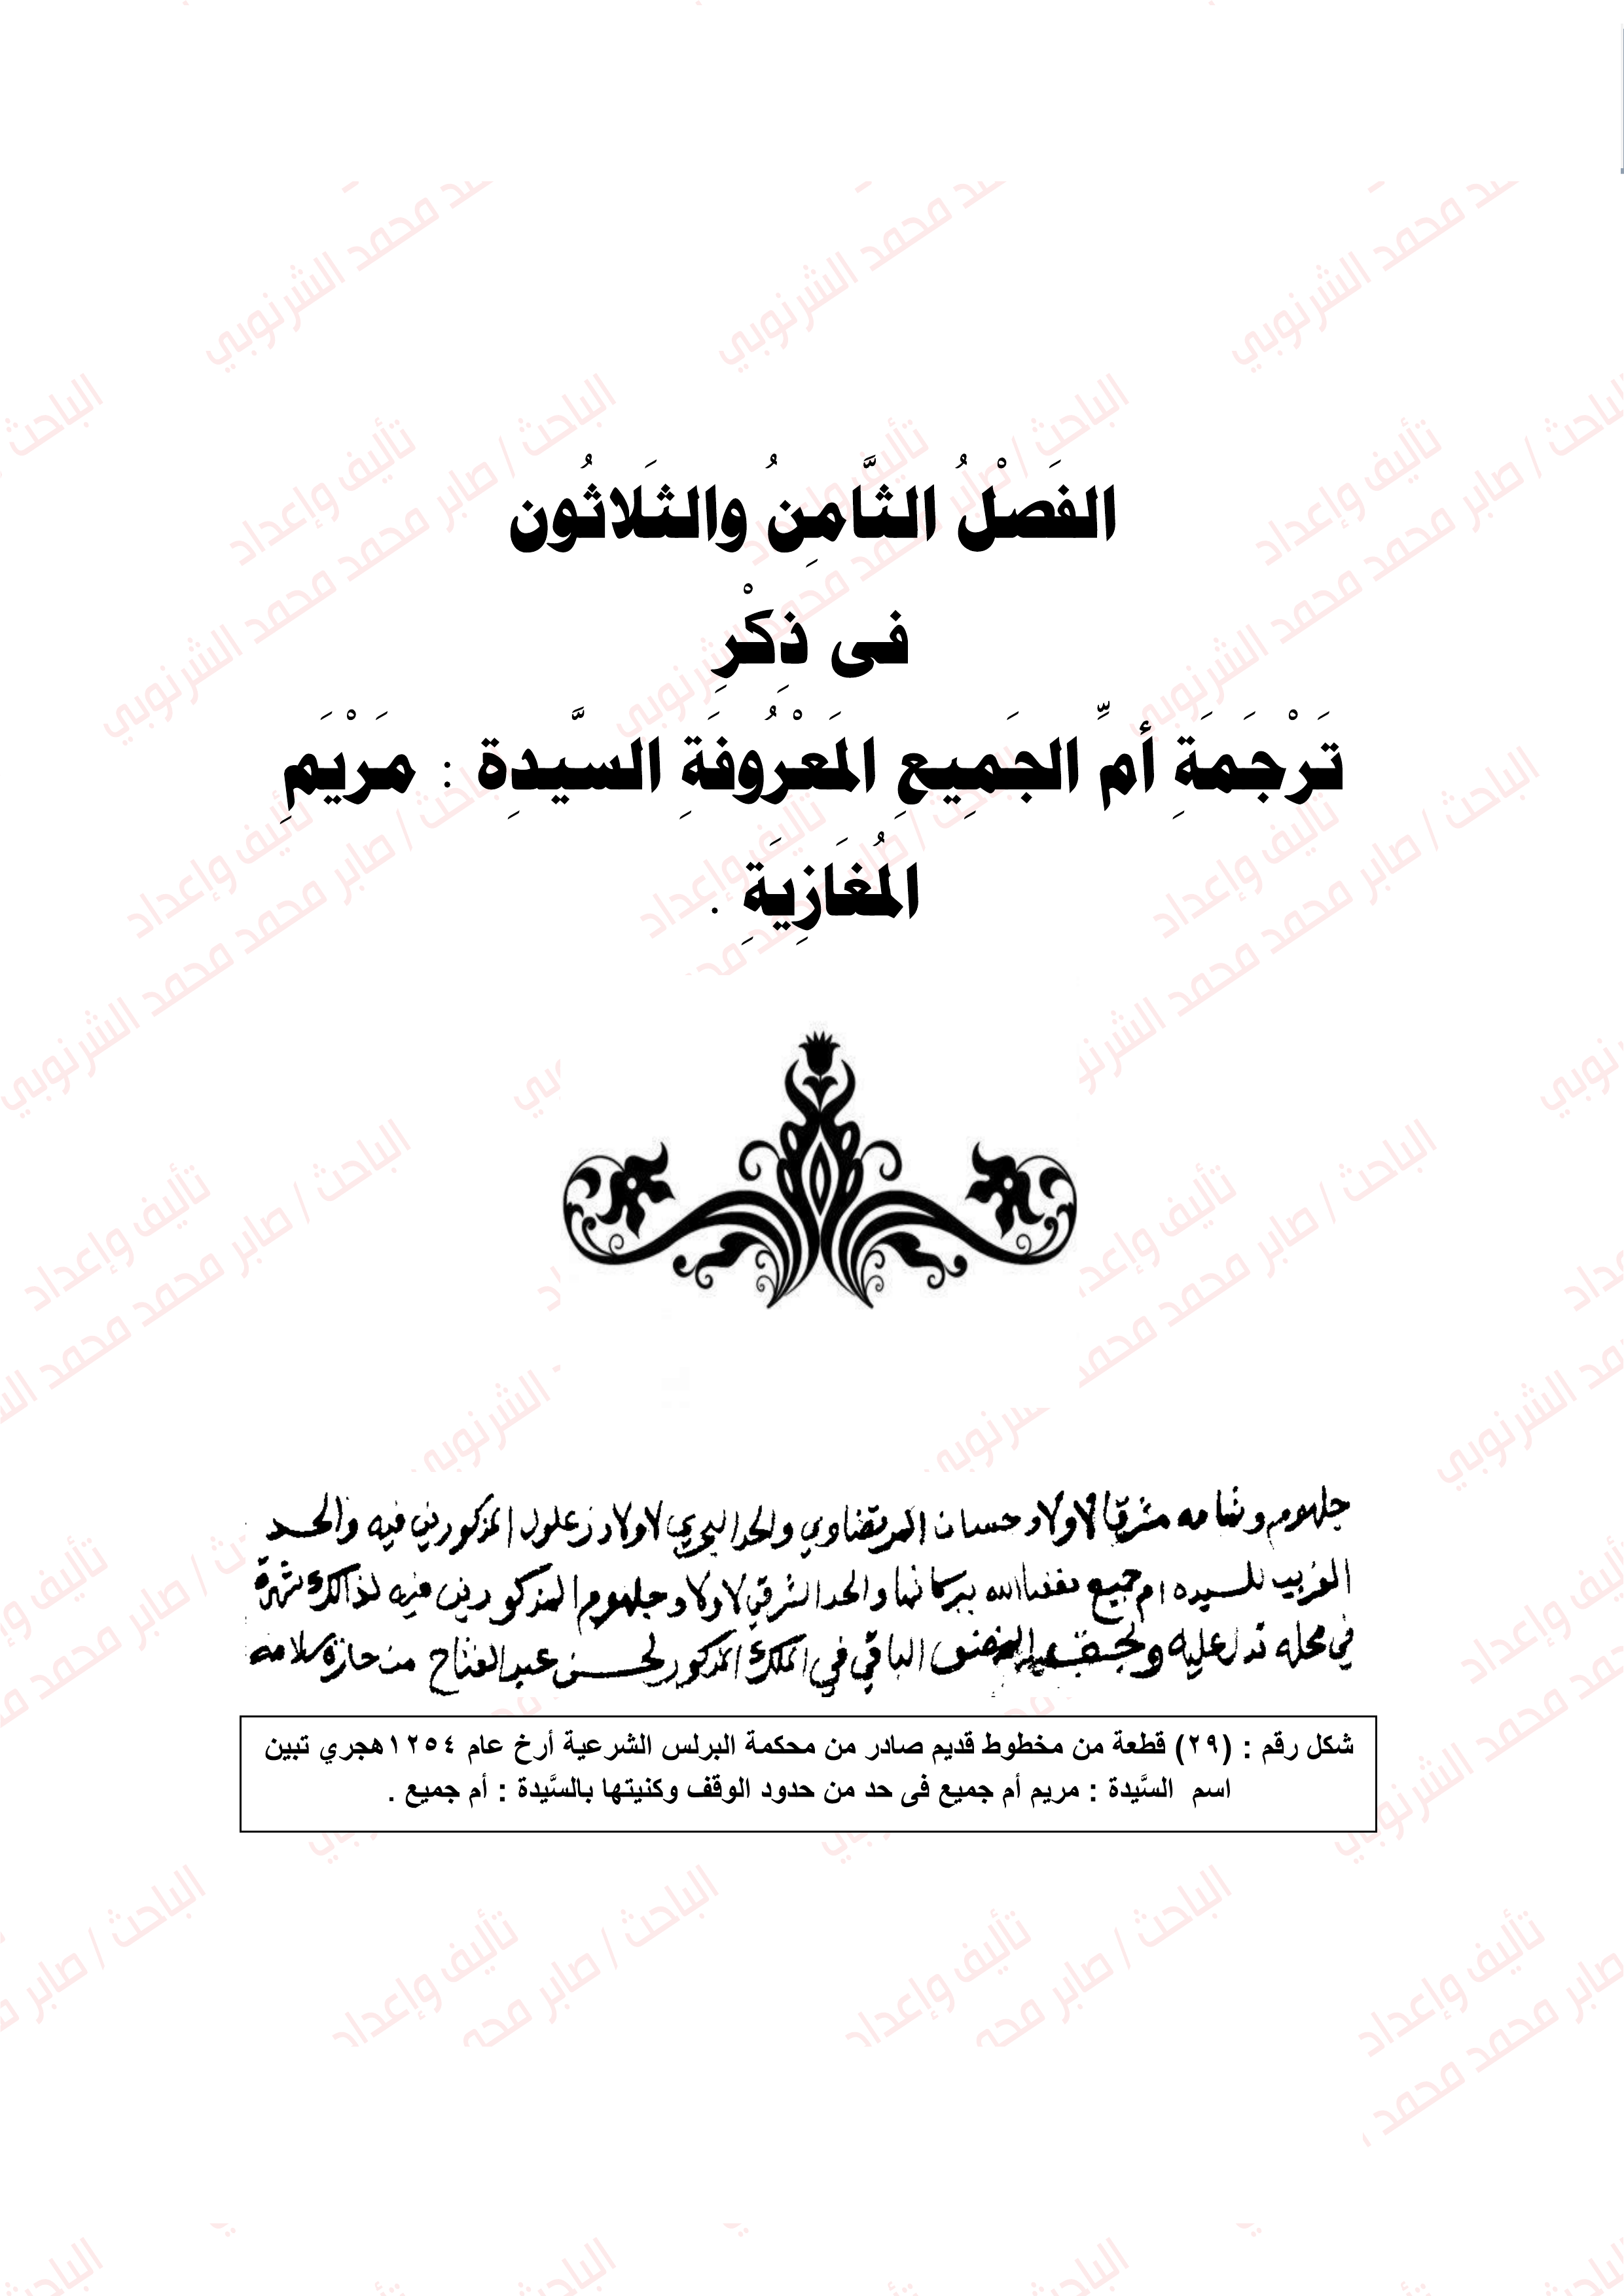 الفَصْلُ الثَّامِنُ والثَلَاثُون
فى ذِكْرِ
تَرْجَمَةِ أمِّ الجَمِيعِ المَعْرُوفَةِ السَّيدِة : مَرْيَمِ
المُغَازِيَةِ .
جلهوم وتمامه مشرقا لاولاد حسان المرتضاوي والحد البحري لاولاد زعلول المذكورين فيه والحد
الغربي للسيده ام جميع نفعنا الله ببركاتها والحد الشرقي لاولاد جلهوم المذكورين فيه لذالك شهرة
في محله تدل عليه الباقي في الملك المذكور لحسن عبد الفتاح من حازة سلامه
شكل رقم : (٢٩) قطعة من مخطوط قديم صادر من محكمة البرلس الشرعية أرخ عام ١٢٥٤هجري تبين
اسم السَّيدة : مريم أم جميع فى حد من حدود الوقف وكنيتها بالسَّيدة : أم جميع .
تأليف وإعداد
الباحث / صابر محمد محمد الشرنوبي